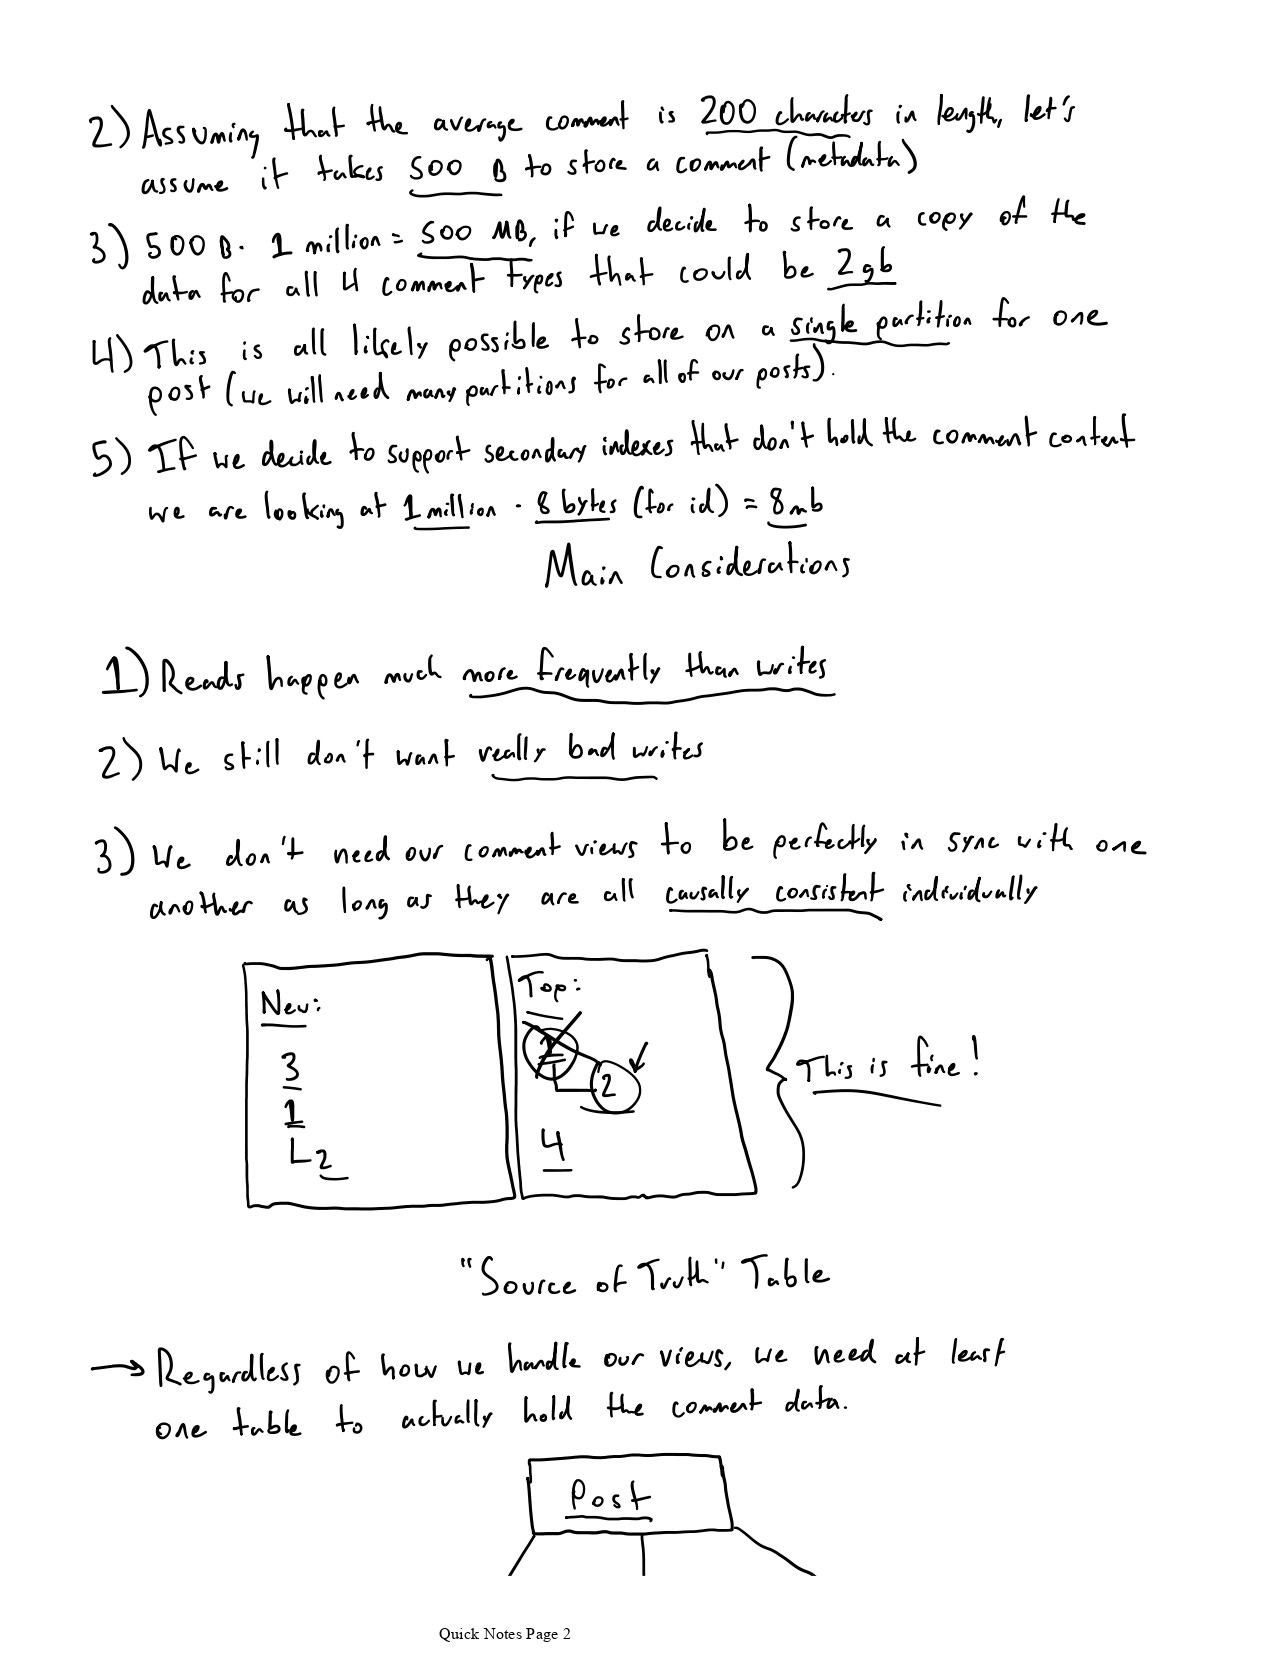 2) Assuming that the average comment is 200 characters in length, let's
assume it takes 500 B to store a comment (metadata)
3) 500 B · 1 million = 500 MB, if we decide to store a copy of the
data for all 4 comment types that could be 2gb
4) This is all likely possible to store on a single partition for one
post (we will need many partitions for all of our posts).
5) If we decide to support secondary indexes that don't hold the comment content
we are looking at 1 million · 8 bytes (for id) = 8mb
Main Considerations
1) Reads happen much more frequently than writes
2) We still don't want really bad writes
3) We don't need our comment views to be perfectly in sync with one
another as long as they are all causally consistent individually
New:
3
1
2
Top:
1
2
4
This is fine!
"Source of Truth" Table
→ Regardless of how we handle our views, we need at least
one table to actually hold the comment data.
Post
Quick Notes Page 2